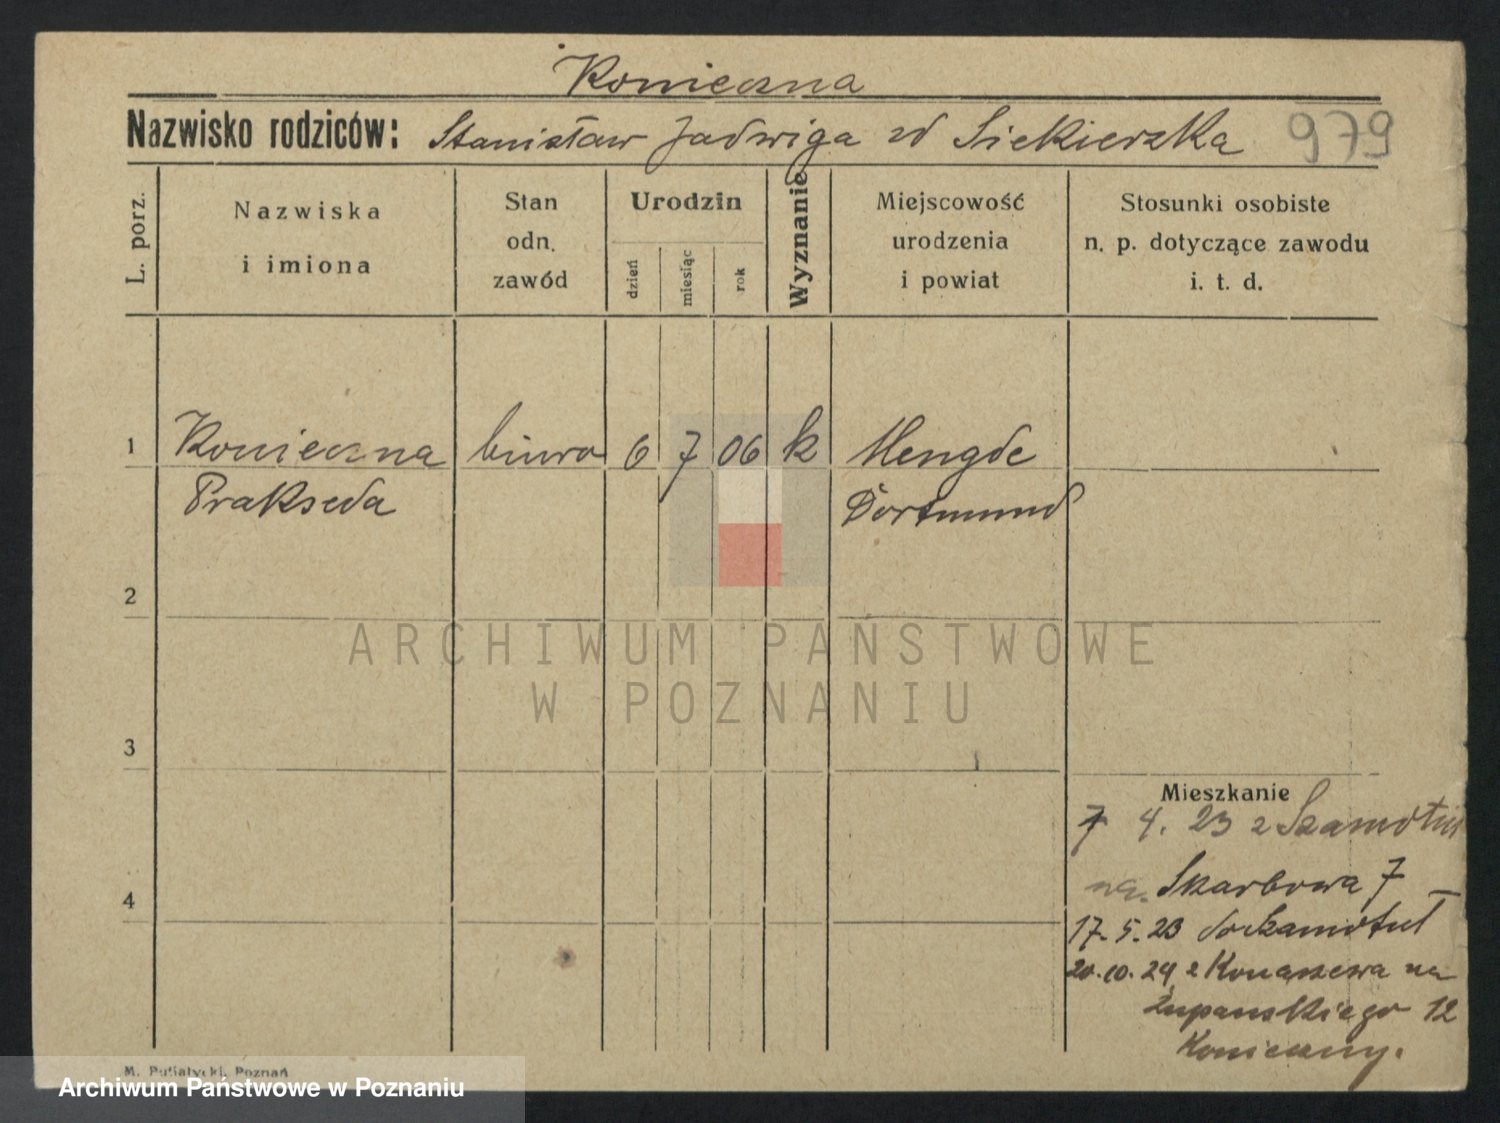 Konieczna
Nazwisko rodziców: Stanisław Jadwiga zd Siekierska 979
L. porz.
Nazwiska
i imiona
Stan
odn.
zawód
Urodzin
dzień
miesiąc
rok
Wyznanie
Miejscowość
urodzenia
i powiat
Stosunki osobiste
n. p. dotyczące zawodu
i. t. d.
1 Konieczna biuro 6 7 06 k Mengde
Prakseda Dortmund
2
ARCHIWUM PAŃSTWOWE
W POZNANIU
3
Mieszkanie
7 4. 23 z Szamotuł
na. Skarbowa 7
4
17. 5. 23 do Szamotuł
20. 10. 24 z Konarzewa na
Łupanskiego 12
Konieczny.
M. Putiatycki, Poznań
Archiwum Państwowe w Poznaniu